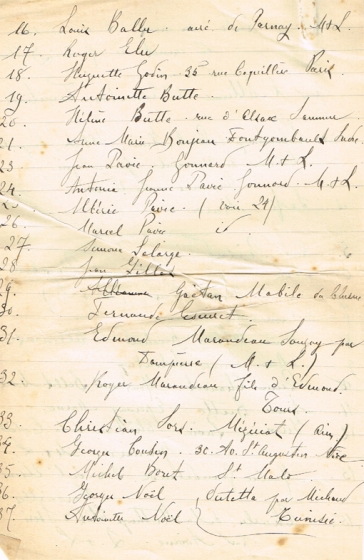 16. Louis Bally curé de Parnay M&L.
17. Roger Elu
18. Huguette Godin 35 rue Paris.
19. Antoinette Butte.
20. Hélène Butte. rue d'Alsace Saumur
21. Anne Marie Bonjean Fontgombault Indre.
23 Jean Pavie. Gonnord M&L.
24. Antonia Jeanne Pavie Gonnord. M&L
25 Albéric Pavie. (voir 24)
26. Marcel Pavie id.
27. Simone Lelarge.
28. Jean Gillot
29. Gaëtan Mabile du Chesne
30. Fernande
31. Edmond Marandeau Souzay par
Dampierre (M. & L.)
32. Roger Marandeau fils d'Edmond.
Tours.
33. Christian Sors. Miziriat (Ain)
34. George Cousin. 30. Av. St Augustin Nice
35. Michel Boret St Malo
36. George Noël par Michaud
37 Antoinette Noël Tunisie.